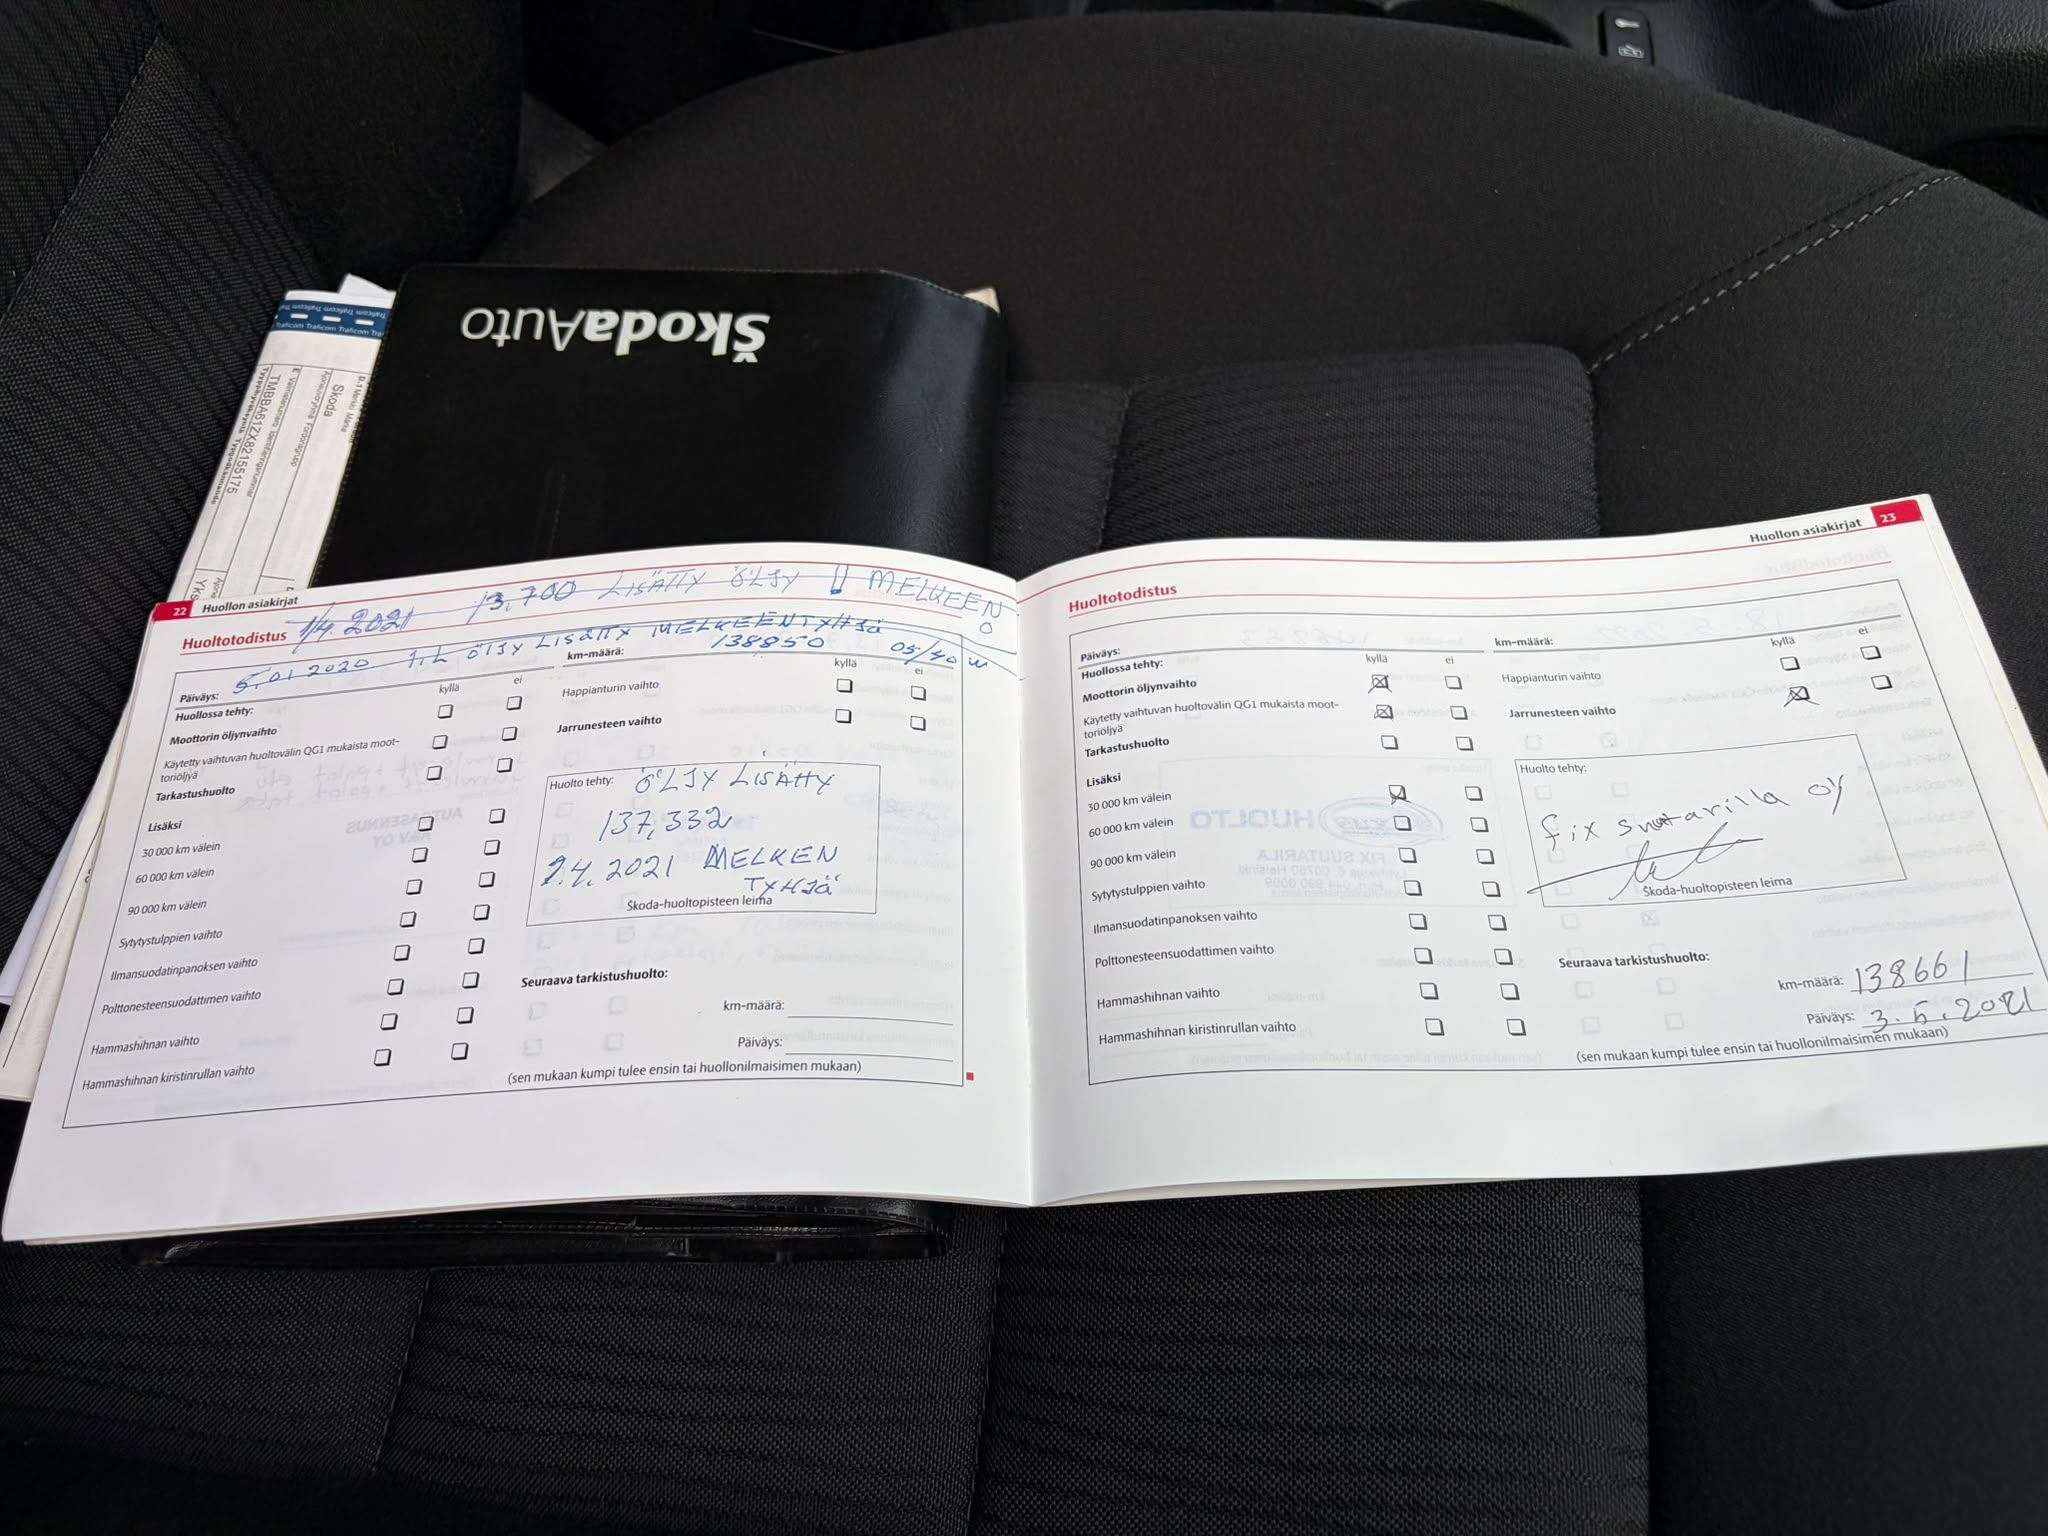 ŠkodaAuto
Traficom Traficom Traficom
D.1 Merkki Märke
Skoda
Ajoneuvoryhmä Fordonsgrupp
E Valmistenumero Identifieringsnummer
TMBBA61ZX82155175
Tyyppihyväksyntä Typgodkännande
22 Huollon asiakirjat
1/4.2021 13,700 LISÄTTY ÖLJY !! MELKEEN
Huoltotodistus
5.01 2020 1.L ÖLJY LISÄTTY MELKEEN TYHJÄ
Päiväys:
km-määrä: 138850 05/40 W
Huollossa tehty:
kyllä ei
Moottorin öljynvaihto
Käytetty vaihtuvan huoltovälin QG1 mukaista moot-
toriöljyä
Tarkastushuolto
Lisäksi
30 000 km välein
60 000 km välein
90 000 km välein
Sytytystulppien vaihto
Ilmansuodatinpanoksen vaihto
Polttonesteensuodattimen vaihto
Hammashihnan vaihto
Hammashihnan kiristinrullan vaihto
kyllä ei
Happianturin vaihto
Jarrunesteen vaihto
Huolto tehty: ÖLJY LISÄTTY
137,332
2.4.2021 MELKEN
TYHJÄ
Škoda-huoltopisteen leima
Seuraava tarkistushuolto:
km-määrä:
Päiväys:
(sen mukaan kumpi tulee ensin tai huollonilmaisimen mukaan)
Huollon asiakirjat 23
Huoltotodistus
Päiväys:
km-määrä:
Huollossa tehty:
kyllä ei
Moottorin öljynvaihto
Käytetty vaihtuvan huoltovälin QG1 mukaista moot-
toriöljyä
Tarkastushuolto
Lisäksi
30 000 km välein
60 000 km välein
90 000 km välein
Sytytystulppien vaihto
Ilmansuodatinpanoksen vaihto
Polttonesteensuodattimen vaihto
Hammashihnan vaihto
Hammashihnan kiristinrullan vaihto
kyllä ei
Happianturin vaihto
Jarrunesteen vaihto
Huolto tehty:
fix suutarilla oy
Škoda-huoltopisteen leima
Seuraava tarkistushuolto:
km-määrä: 138661
Päiväys: 3.5.2021
(sen mukaan kumpi tulee ensin tai huollonilmaisimen mukaan)